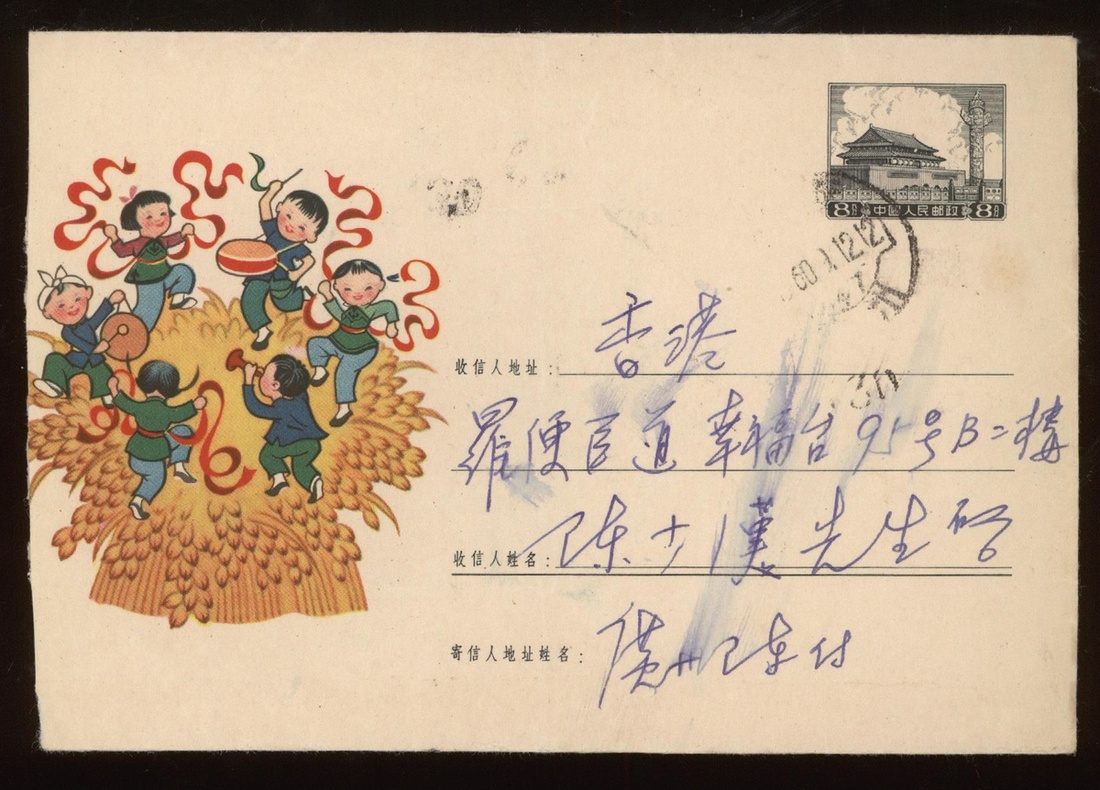 8分 中国人民邮政 8分
60.1.12.12
收信人地址: 香港
羅便臣道幸福台95号B二樓
收信人姓名: 陈少漢先生启
寄信人地址姓名: 廣州陈付